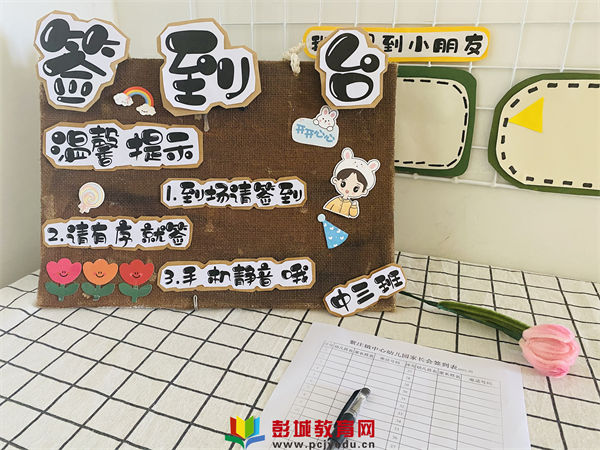 签到台
到小朋友
开开心心
温馨提示
1.到场请签到
2.请有序就签
3.手机静音哦
中三班
镇中心幼儿园家长会签到表
彭城教育网
www.pcjyedu.cn